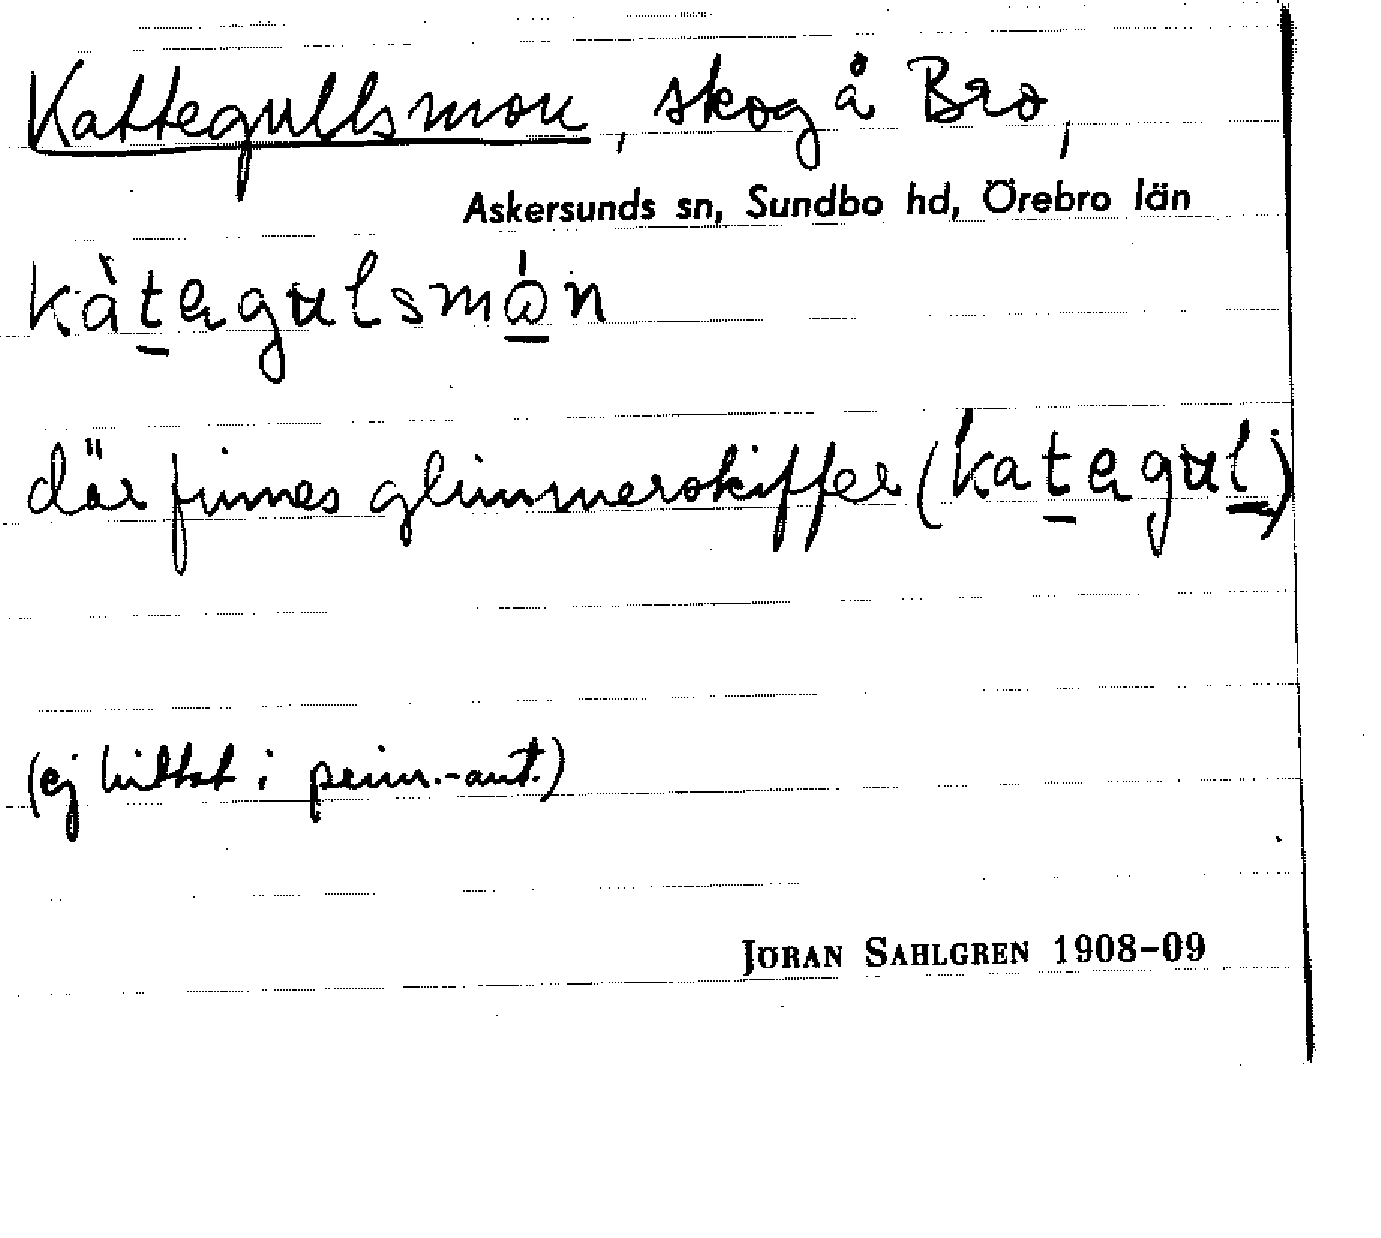 Kattegullsmon, skog å Bro,
Askersunds sn, Sundbo hd, Örebro län
kàt̲egulsmǻ̲n
där finnes glimmerskiffer (kat̲egul̲)
(ej hittat i prim.-ant.)
JÖRAN SAHLGREN 1908–09